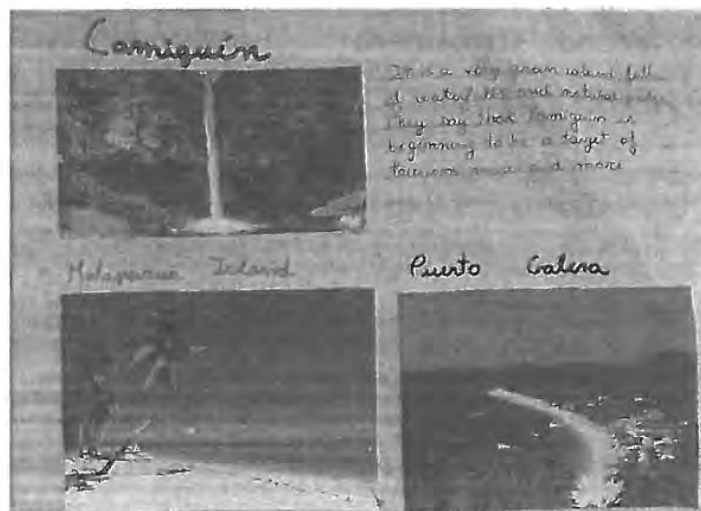 Camiguín
It is a very green island, full
of waterfalls and natural
They say that Camiguin is
beginning to be a target of
tourism more and more
Malapascua Island
Puerto Galera